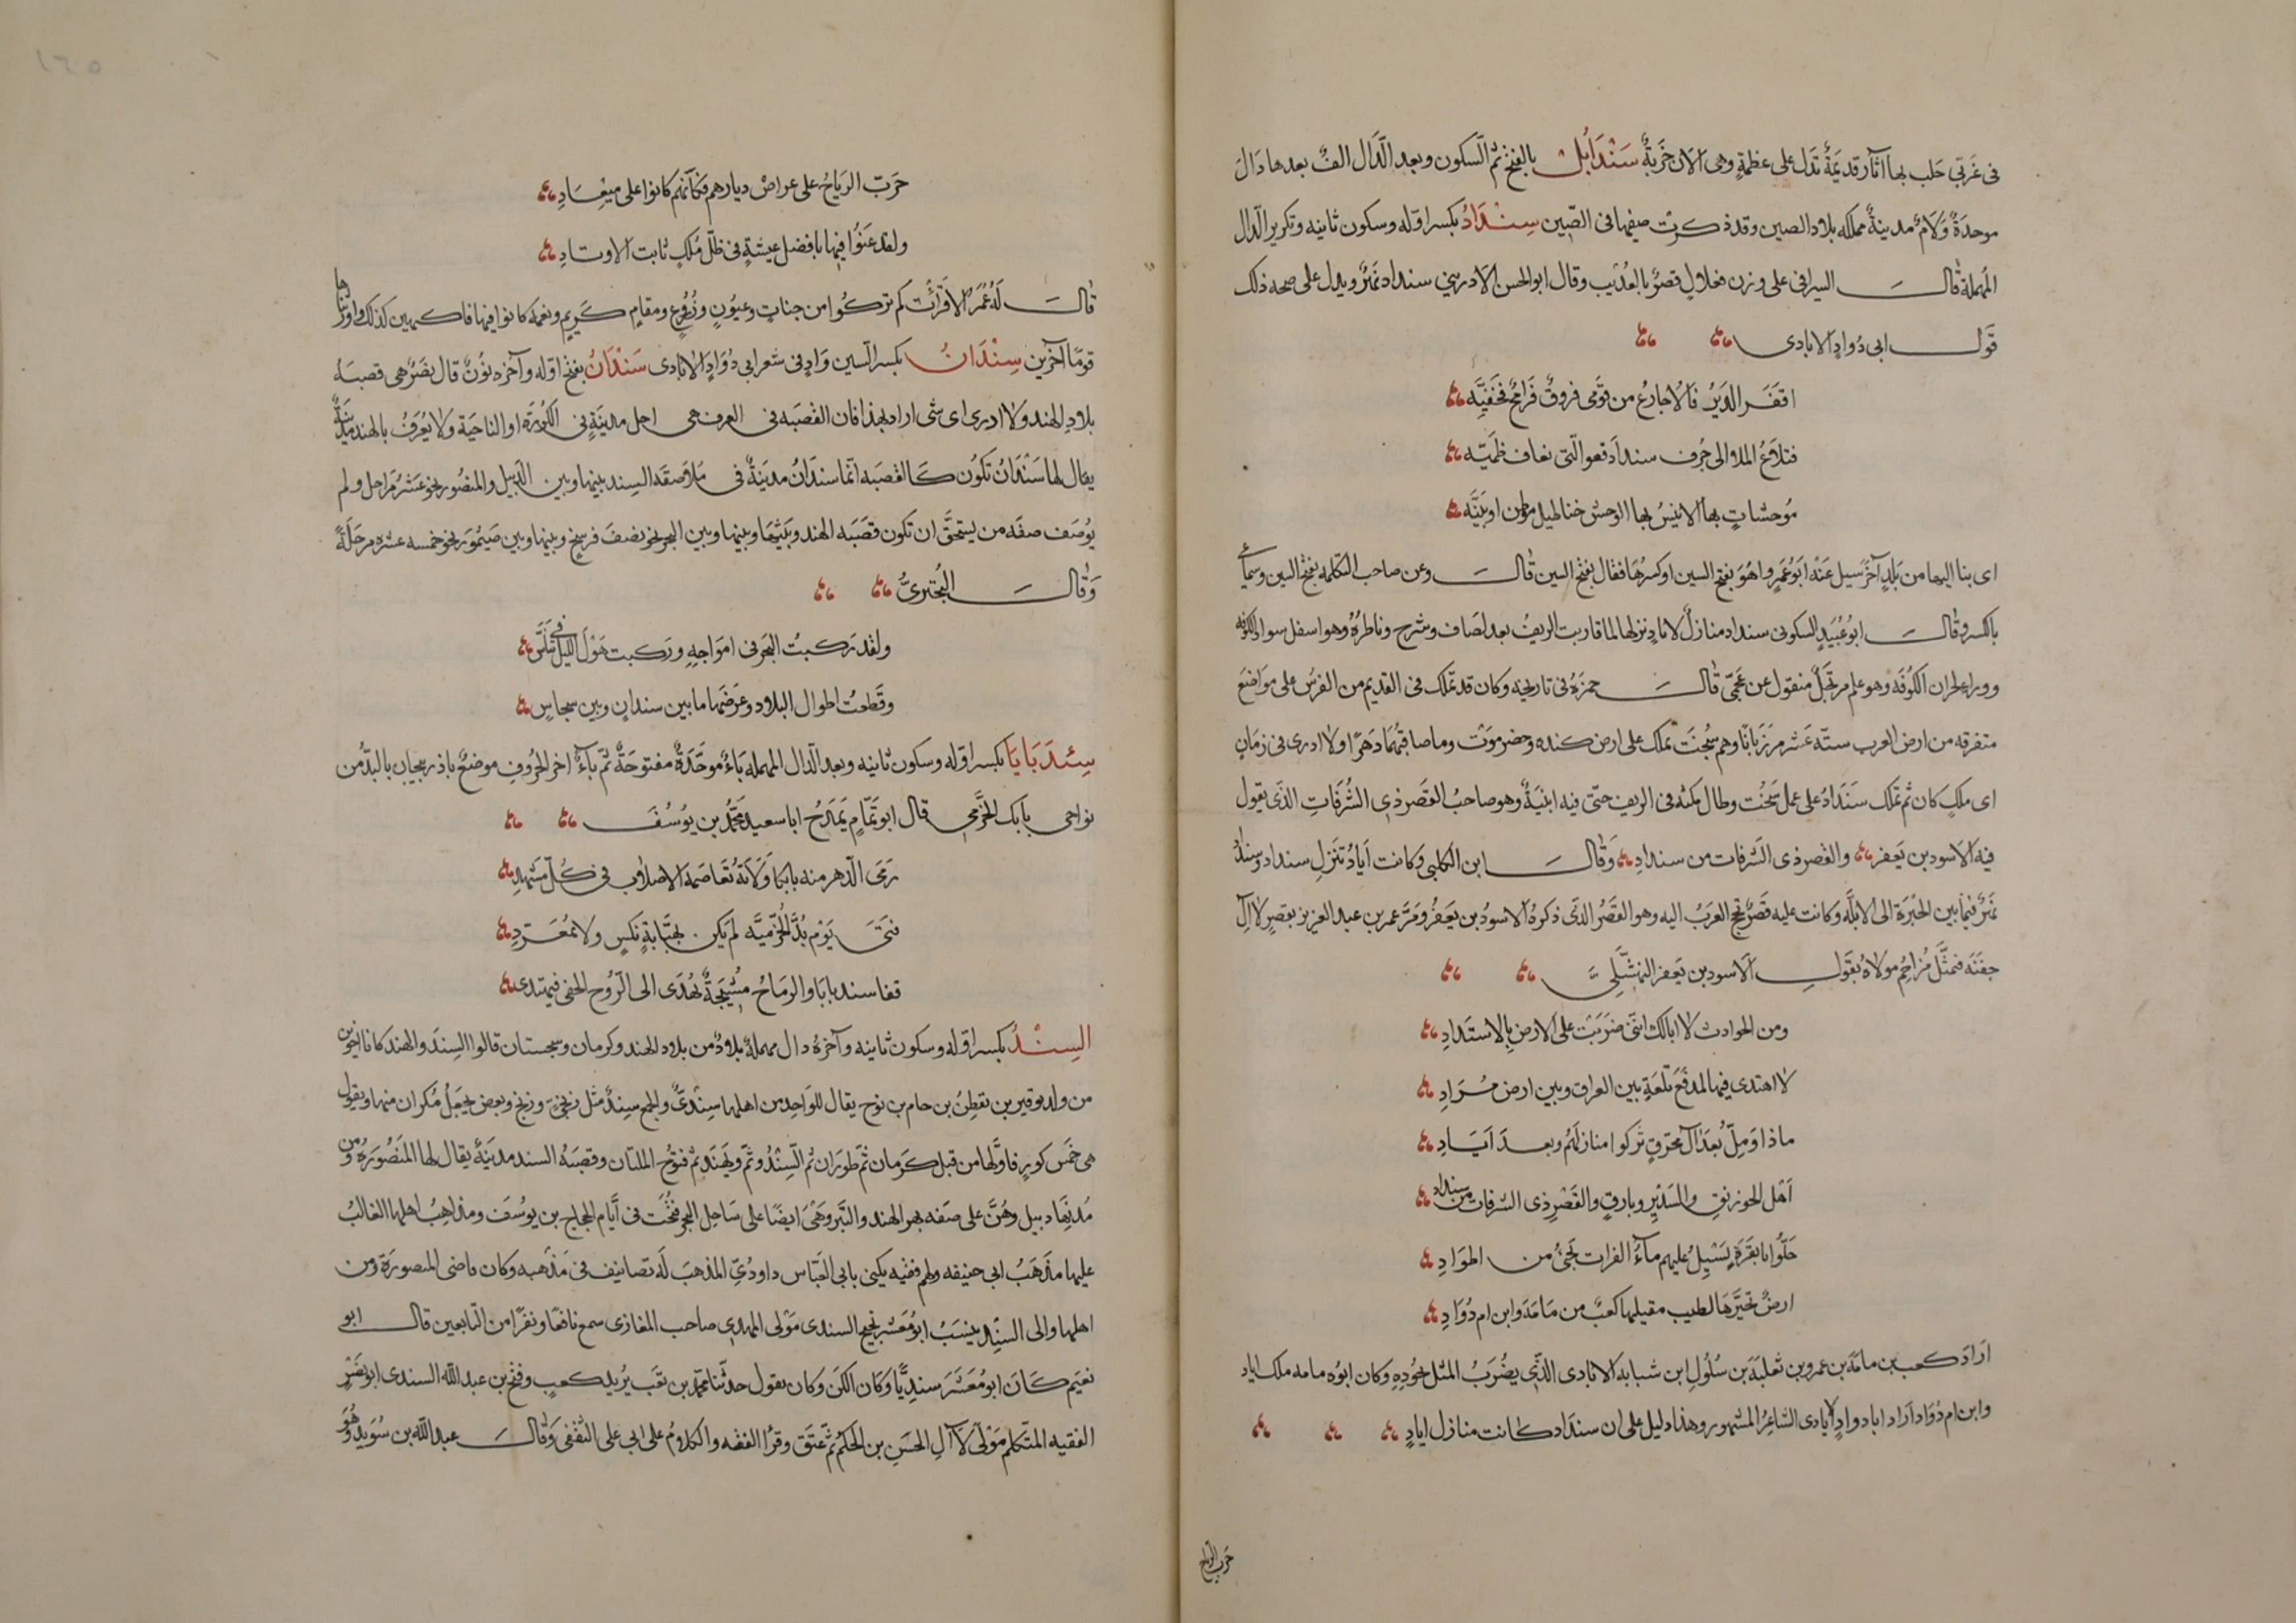 فى غَربّى حَلب بها اثآر قديمَةٌ تدل على عظمةٍ وهى الآن خَرَبةٌ سَنْدَابُل بالفتح ثم السكون وبعد الدّال الفٌ بعدها دَالَ
موحدَةٌ وَلَامٌ مدينةٌ مملكه بلاد الصين وقد ذكرت صيفها فى الصّين سِنْدَادُ بكسر اوّله وسكون ثانيه وتكرير الدّال
المُهملة قالَ السيرافى على وزن فعلالٍ قصرٌ بالعُذَيب وقال ابو الحسن الادرسى سنداد نَهرٌ ويدل على صحه ذلك
قَول ابى دُوادٍ الايادى
اقفَرَ الدَيرُ فالاجارعُ من قومى فروقٌ فَرَامحٌ فَخَفيَّه
فتلاعُ الملا الى جُرف سنداد فعو الّتى نعاف ظَمَيّه
مُوحشاتٍ بها الانيسُ بها الوحش خناطيل مُوطن او بَنيَّه
اى بنا اليها من بَلدٍ آخَرَ سيل عَنْدا بَوُعَمرٍ واهُوَ بفتح السين او كسرُها فقال بفتح السين قالَ وعن صاحب التكلمه بفتح السين وسماعى
بالكسر وقالَ ابوُعُبَيدٍ السكونى سنداد منازلٌ لايادٍ نزلها لما قاربت الريفُ بعد لصَاف وشرج وناطرُهُ وهو اسفل سواد الكوفه
وورا نجران الكُوفَه وهو علم مرتجَلٌ منقول عن عجَمِىّ قالَ حمزَةُ فى تاريخه وكان قد تملّك فى القديم من الفرسُ على مواضعَ
متفرقه من ارض العرب ستّه عَشر مرَزَبانًا وهم سُخنَت تملك على ارض كنده وحضر موَت وما صاقبَهُما دَهرًا ولا ادرى فى زمَانِ
اى ملكٍ كان ثم تملك سَنَدَادُ على عمل سَخُنْت وطال مكثه فى الريف حتّى بنى فيه ابنيَةٌ وهو صاحبُ القَصر ذى الشُرفَاتِ الذى يقول
فيه الاسود بن يَعفر والقصر ذى الشّرفات من سندادِ وَقالَ ابن الكلبى وكانت ايادُ تنزل سنداد وسندادُ
نَهرٌ فيما بين الحيْرَة الى الابلّه وكانت عليه قصرٌ تحج العَربُ اليه وهو القَصرُ الذى ذكرهُ الاسودُ بن يَعفُر ومَرَّ عمر بن عبد العزيز بقصرٍ لآلِ
جفَنَه فتمثَّل مُزاحِمٌ مولاهُ بقولِ الاسود بن يَعفر النهشَلِى
ومن الحوادث لا ابالك انّنى ضرَبت على الارض بالاسَدادِ
لا اهتدى فيها لمدفَع تلعَةٍ بين العراق وبين ارض مُرَادِ
ماذا اوَمِلُّ بُعدَ آلِ محَرِقٍ تركوا منازلَهُم وبعدَ اَيَادِ
اَهْل الخورنق والسَديرِ وبارقٍ والقَصْرِ ذى الشرفات من سنداد
حَلُّوا بانقَرَةٍ يَسَيِلُ عليهم مآءُ الفرات يَجئُ من اطوَادِ
ارضٌ تخيَّرهَا لطيب مقيلها كَعبٌ من مَامَة وابن ام دُؤَادِ
ارَادَ كعب بن مامَة بن عمرو بن ثعلبَة بن سُلُولِ ابن شبابه الايادى الذّى يضْرَبُ المثل بجُودِهِ وكان ابوُه مامه ملك اياد
وابن ام دُوَاد اَرَاد ابا دوادٍ الايادى الشاعِرُ المشهور وهذا دليل على ان سنداد كانت منازل ايادٍ
جَرَت الرّياح
جَرَت الريَاحُ على عراض ديارهم فكَانّهم كانوا على ميْعِسَادِ
ولقد عَنَوُا فيها بافضل عيشةٍ فى ظلّ مُلكٍ ثابت الاوتادِ
قالَ لَهُ عُمَرُ الا قرَأتَ كم تركُوا من جناتٍ وعيُونٍ وزُروعٍ ومقامٍ كَريمٍ ونعمه كانوا فيها فاكهين كذلك واورَثناها
قومًا آخَرين سِنْدَانُ بكسر السين وَادٍ فى شعر ابى دُوَادِ الايادى سَنْدَانُ بفتح اوّله وآخره نوُنٌ قال نصَرٌ هى قصبَهُ
بلادِ الهند ولا ادرى اى شى اراد بهذا فان القَصَبَه فى العرف هى اجل مدينَةٍ فى الكُورَة او الناحيَة ولا يُعرَفُ بالهند مَدينَةٌ
يقال لها سَنْدَانُ تكُون كالقصَبه انّما سندَانُ مدينَةٌ فى ملاصقَه السند بينها وبين الدّيبل والمنصُوره نحو عَشرُ مَراحل ولم
يُوصَف صفَه من يستَحقَّ ان تكون قصَبَه الهند وبَيَنْهَا وبينها وبين البحر نحو نصفَ فرسخٍ وبينها وبين صَيمُورَ نحو خمسه عشره مرحَلةً
وَقالَ البُحترىُّ
ولقد رَكبتُ البَحرَ فى امَواجِهِ ورَكبت هَوْلَ الليل فى بَيَّاسِ
وقَطعتُ اطوال البلاد وعَرَضَها ما بين سندانٍ وبين سجاسٍ
سِنْدَبَايَا بكسر اوّله وسكون ثانيه وبعد الدّال المهمله بَاءٌ موحّدَةٌ مفتوحَةٌ ثمّ يآءٌ آخر الحرُوفِ موضعٌ باذربيجان بالبذّ من
نواحى بابَك الخُرَّمىِ قال ابو تَمّامٍ يَمَدَحُ ابا سعيدٍ مُحمَّد بن يوُسُفَ
رَمَى الدّهر منه بابكا وَوَلاَتهُ بقاصمَة الاصلابِ فى كُلّ مَشهدِ
فتَى يَوْم بُدَّ الخُرّميَّه لَم يَكن بهيَّابةٍ نَكسٍ ولا مُعَرَّدِ
قفا سند بابَا والرمَاحُ مُشيحَةٌ تُهدَى الى الرّوُح الخفى فيهتدى
السِنْدُ بكسر اوّله وسكون ثانيه وآخرهُ دال مهملةٌ بلادٌ من بلاد الهند وكرمان وسجستان قالوا السِنَد والهند كانا اخوين
من ولد بوقير بن يقطن بن حام بن نوح يقال للوَاحِد من اهلها سِندىٌّ والجمع سِندٌ مثل زنجىّ وزنج وبعض يجَعلُ مُكران منها ويقول
هى خَمس كوُرٍ فاوّلها من قبل كَرمان ثم طورَان ثم السِندُ وثمّ ويهَند ثمّ قنوّج الملتان وقصبَهُ السند مدينَةٌ يقال لها المَنصُورَةُ ومن
مُدنِهَا دبيل وهُنّ على ضفه بحر الهند والتّيز وَهَىَ ايضًا على سَاحل البحر فتُحَت فى أيَّام الحجاج بن يوُسُفَ ومذاهِبُ اهلها الغالبُ
عليها مذَهَبُ ابى حنيفه ولهم فقيه يكنى بابى العَبَّاس داودُىّ المذهبَ لَه تصانيف فى مَذهبه وكان قاضى المنصورَة ومن
اهلها والى السِنِد ينسَبُ ابوُ مَعْشَر نجيح السندى موْلى المهدى صاحب المغازى سمع نافعًا ونفرًا من التّابعين قالَ ابو
نعَيم كانَ ابو مُعَشَرَ سنديًّا وَكَان الكنَ وكان يقول حدثنا محمّد بن قعَب يرُيد كعبٍ وفتح بن عبد الله السندى ابو نَصْرٍ
الفقيه المتكلم مَوْلىً لآ آلِ الحسَنِ بن الحكم ثُمّ عتَق وقرأ الفقه والكلامُ على ابى على الثقفى وَقالَ عبد الله بن سُوَيدٍ وهُوَ